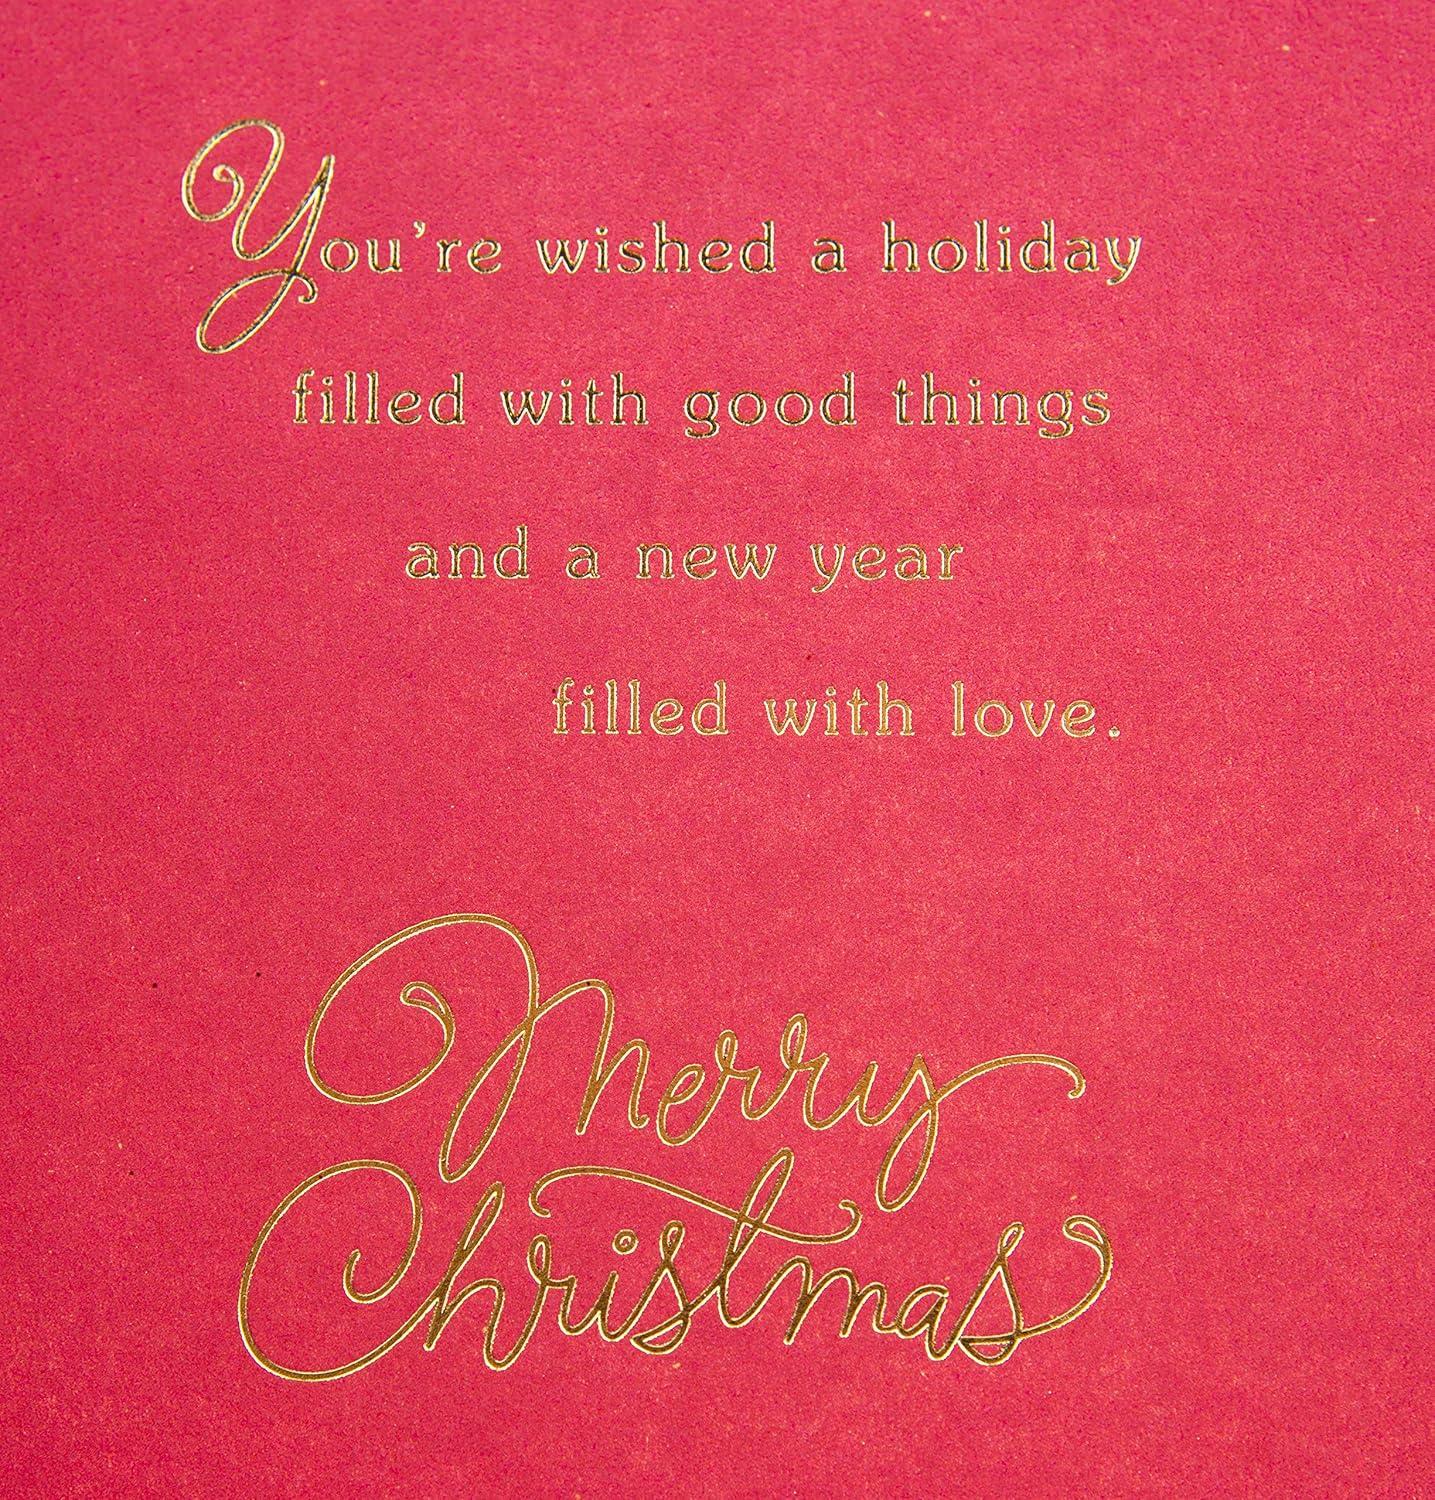 You're wished a holiday
filled with good things
and a new year
filled with love.
Merry
Christmas